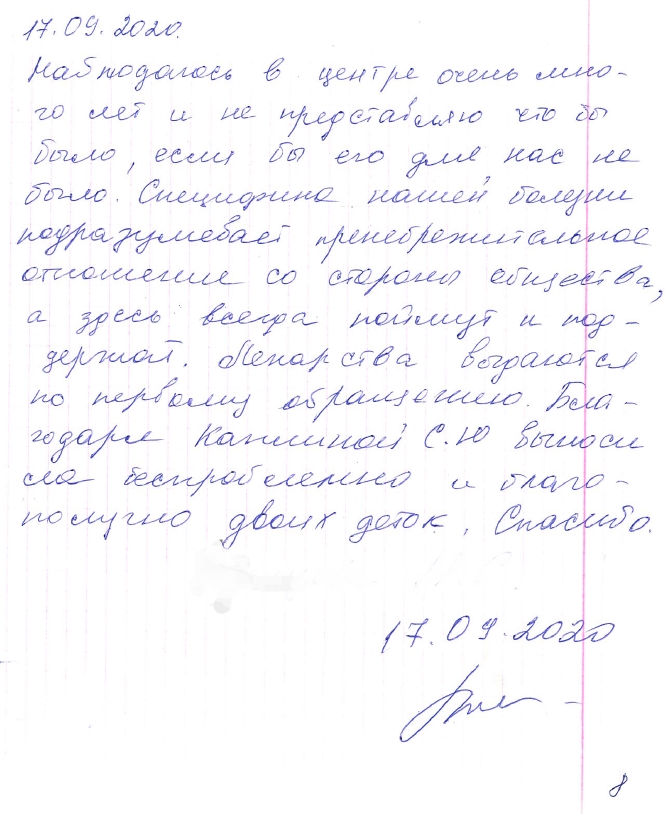 17.09.2020.
Наблюдаюсь в центре очень мно-
го лет и не представляю что бы
было, если бы его для нас не
было. Специфика нашей болезни
подразумевает пренебрежительное
отношение со стороны общества,
а здесь всегда поймут и под-
держат. Лекарства выдаются
по первому обращению. Бла-
годаря С.Ю выноси
ла беспроблемно и благо-
получно двоих деток. Спасибо.
17.09.2020
8